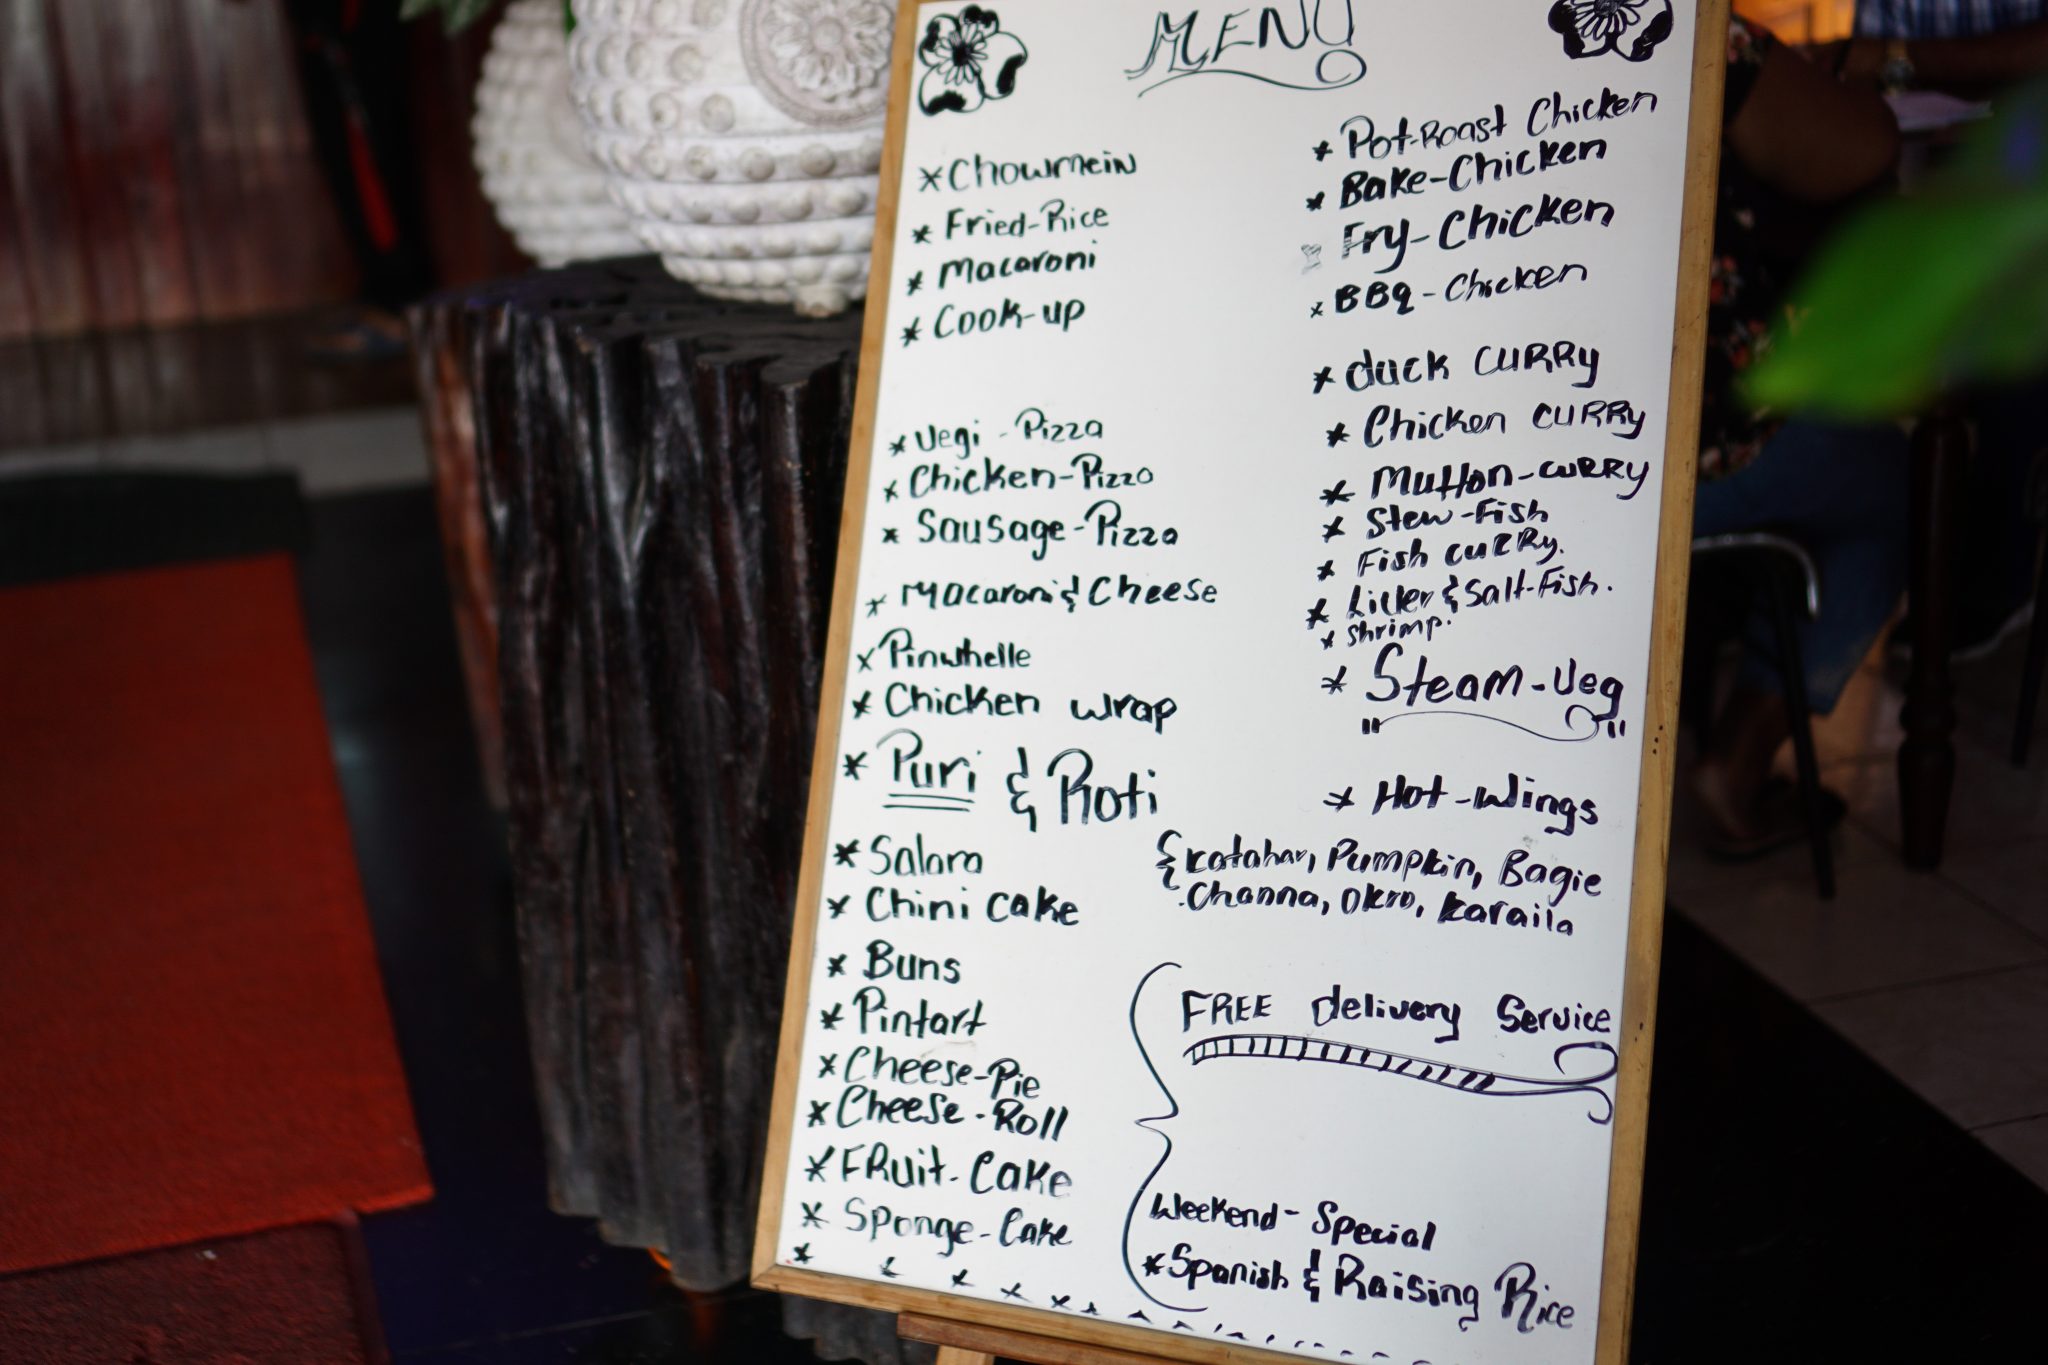 MENU
* Chowmein
* Fried-Rice
* Macaroni
* Cook-up
* Vegi - Pizza
* Chicken-Pizza
* Sausage-Pizza
* Macaroni & Cheese
* Pinwhelle
* Chicken wrap
* Puri & Roti
* Salara
* Chini cake
* Buns
* Pintart
* Cheese-Pie
* Cheese-Roll
* FRuit-Cake
* Sponge-Cake
* Pot-Roast Chicken
* Bake-Chicken
* Fry-Chicken
* BBQ-Chicken
* duck CURRY
* Chicken CURRY
* Mutton-CURRY
* Stew-Fish
* Fish CURRY.
* Licker & Salt-Fish.
* Shrimp.
* Steam-Veg
* Hot-Wings
& katahar, Pumpkin, Bagie
Channa, Okro, karaila
FREE delivery Service
Weekend-Special
* Spanish & Raising Rice